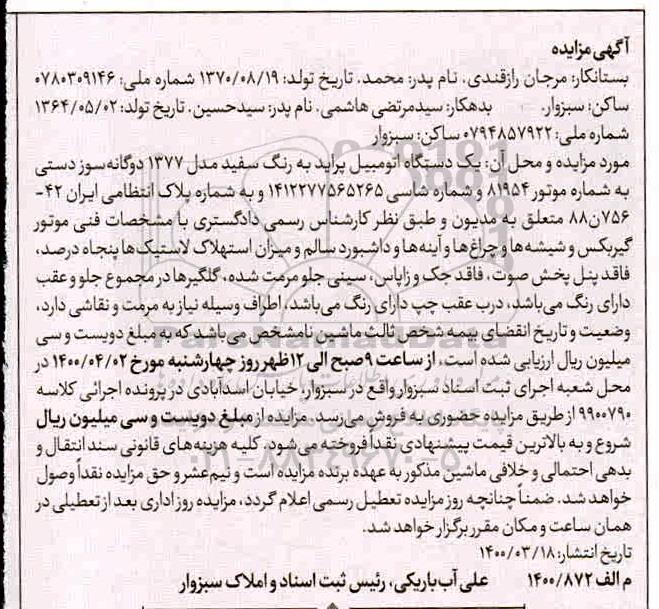 آگهی مزایده
بستانکار: مرجان رازقندی، نام پدر: محمد، تاریخ تولد: ۱۳۷۰/۰۸/۱۹ شماره ملی: ۰۷۸۰۳۰۹۱۴۶
ساکن: سبزوار. بدهکار: سیدمرتضی هاشمی، نام پدر: سیدحسین، تاریخ تولد: ۱۳۶۴/۰۵/۰۲
شماره ملی: ۰۷۹۴۸۵۷۹۲۲ ساکن: سبزوار
مورد مزایده و محل آن: یک دستگاه اتومبیل پراید به رنگ سفید مدل ۱۳۷۷ دوگانه‌سوز دستی
به شماره موتور ۸۱۹۵۴ و شماره شاسی ۱۴۱۲۲۷۷۵۶۵۲۶۵ و به شماره پلاک انتظامی ایران ۴۲-
۷۵۶ن۸۸ متعلق به مدیون و طبق نظر کارشناس رسمی دادگستری با مشخصات فنی موتور
گیربکس و شیشه‌ها و چراغ‌ها و آینه‌ها و داشبورد سالم و میزان استهلاک لاستیک‌ها پنجاه درصد،
فاقد پنل پخش صوت، فاقد جک و زاپاس، سینی جلو مرمت شده، گلگیرها در مجموع جلو و عقب
دارای رنگ می‌باشد، درب عقب چپ دارای رنگ می‌باشد، اطراف وسیله نیاز به مرمت و نقاشی دارد،
وضعیت و تاریخ انقضای بیمه شخص ثالث ماشین نامشخص می‌باشد که به مبلغ دویست و سی
میلیون ریال ارزیابی شده است، از ساعت ۹ صبح الی ۱۲ ظهر روز چهارشنبه مورخ ۱۴۰۰/۰۴/۰۲ در
محل شعبه اجرای ثبت اسناد سبزوار واقع در سبزوار، خیابان اسدآبادی در پرونده اجرائی کلاسه
۹۹۰۰۷۹۰ از طریق مزایده حضوری به فروش می‌رسد. مزایده از مبلغ دویست و سی میلیون ریال
شروع و به بالاترین قیمت پیشنهادی نقداً فروخته می‌شود. کلیه هزینه‌های قانونی سند انتقال و
بدهی احتمالی و خلافی ماشین مذکور به عهده برنده مزایده است و نیم عشر و حق مزایده نقداً وصول
خواهد شد. ضمناً چنانچه روز مزایده تعطیل رسمی اعلام گردد، مزایده روز اداری بعد از تعطیلی در
همان ساعت و مکان مقرر برگزار خواهد شد.
تاریخ انتشار: ۱۴۰۰/۰۳/۱۸
م الف ۱۴۰۰/۸۷۲ علی آب‌باریکی، رئیس ثبت اسناد و املاک سبزوار